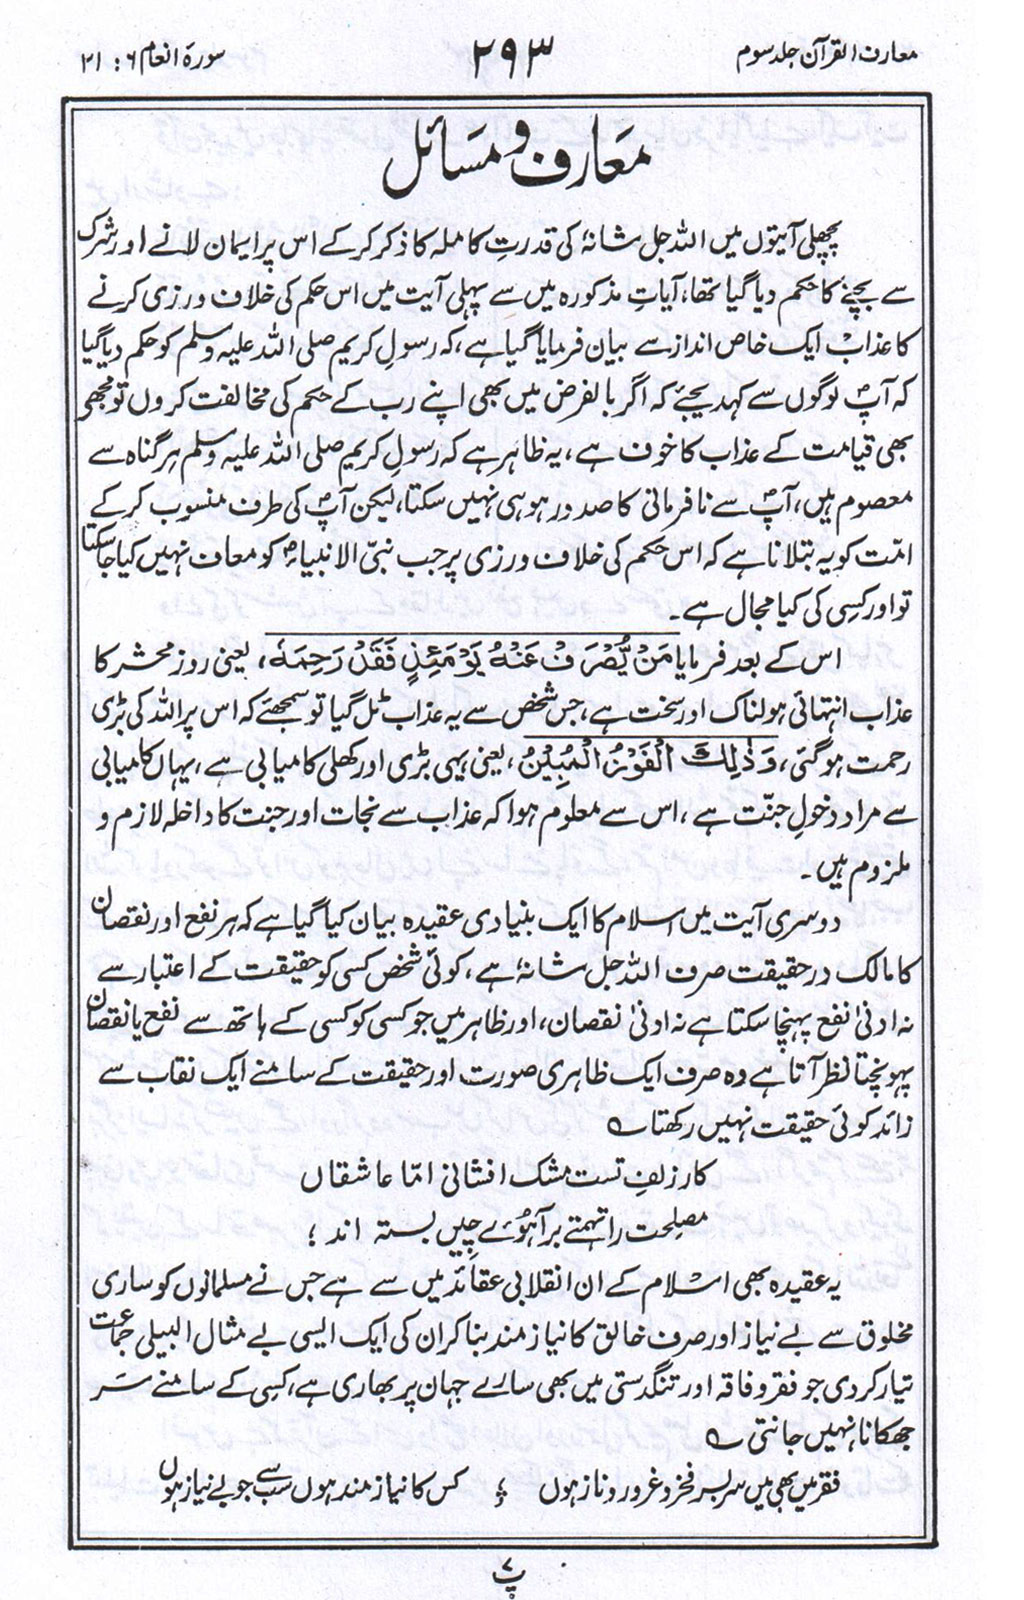 معارف القرآن جلد سوم
۲۹۳
سورۃ انعام ۶ : ۲۱
معارف و مسائل
پچھلی آیتوں میں اللہ جل شانہٗ کی قدرتِ کاملہ کا ذکر کرکے اس پر ایمان لانے اور شرک
سے بچنے کا حکم دیا گیا تھا، آیاتِ مذکورہ میں سے پہلی آیت میں اس حکم کی خلاف ورزی کرنے
کا عذاب ایک خاص انداز سے بیان فرمایا گیا ہے، کہ رسولِ کریم صلی اللہ علیہ وسلم کو حکم دیا گیا
کہ آپؐ لوگوں سے کہہ دیجئے کہ اگر بالفرض میں بھی اپنے رب کے حکم کی مخالفت کروں تو مجھے
بھی قیامت کے عذاب کا خوف ہے، یہ ظاہر ہے کہ رسولِ کریم صلی اللہ علیہ وسلم ہر گناہ سے
معصوم ہیں، آپؐ سے نافرمانی کا صدور ہو ہی نہیں سکتا، لیکن آپؐ کی طرف منسوب کرکے
امّت کو یہ بتلانا ہے کہ اس حکم کی خلاف ورزی پر جب نبیّ الانبیاءؐ کو معاف نہیں کیا جاسکتا
تو اور کسی کی کیا مجال ہے۔
اس کے بعد فرمایا مَنْ یُّصْرَفْ عَنْہُ یَوْمَئِذٍ فَقَدْ رَحِمَہٗ، یعنی روزِ محشر کا
عذاب انتہائی ہولناک اور سخت ہے، جس شخص سے یہ عذاب ٹل گیا تو سمجھئے کہ اس پر اللہ کی بڑی
رحمت ہوگئی، وَذٰلِکَ الْفَوْزُ الْمُبِیْنُ، یعنی یہی بڑی اور کھلی کامیابی ہے، یہاں کامیابی
سے مراد دخولِ جنّت ہے، اس سے معلوم ہوا کہ عذاب سے نجات اور جنت کا داخلہ لازم و
ملزوم ہیں۔
دوسری آیت میں اسلام کا ایک بنیادی عقیدہ بیان کیا گیا ہے کہ ہر نفع اور نقصان
کا مالک درحقیقت صرف اللہ جل شانہٗ ہے، کوئی شخص کسی کو حقیقت کے اعتبار سے
نہ ادنیٰ نفع پہنچا سکتا ہے نہ ادنیٰ نقصان، اور ظاہر میں جو کسی کو کسی کے ہاتھ سے نفع یا نقصان
پہونچتا نظر آتا ہے وہ صرف ایک ظاہری صورت اور حقیقت کے سامنے ایک نقاب سے
زائد کوئی حقیقت نہیں رکھتا ؎
کار زلفِ تست مشک افشانی امّا عاشقاں
مصلحت را تہمتے بر آہوئے چیں بستہ اند ؛
یہ عقیدہ بھی اسلام کے ان انقلابی عقائد میں سے ہے جس نے مسلمانوں کو ساری
مخلوق سے بے نیاز اور صرف خالق کا نیازمند بنا کر ان کی ایک ایسی بے مثال البیلی جماعت
تیار کردی جو فقر و فاقہ اور تنگدستی میں بھی سارے جہان پر بھاری ہے، کسی کے سامنے سَر
جھکانا نہیں جانتی ؎
فقر میں بھی میں سربسر فخر و غرور و ناز ہوں ؛ کس کا نیازمند ہوں سب سے جو بے نیاز ہوں
پ ۷